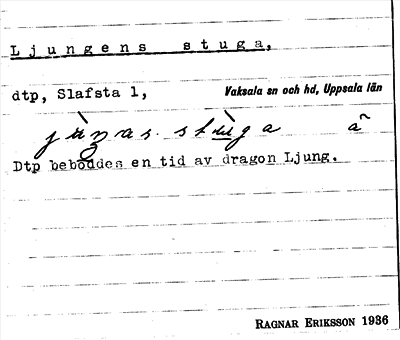 Ljungens stuga,
dtp, Slafsta 1, Vaksala sn och hd, Uppsala län
stuga
Dtp beboddes en tid av dragon Ljung.
RAGNAR ERIKSSON 1936